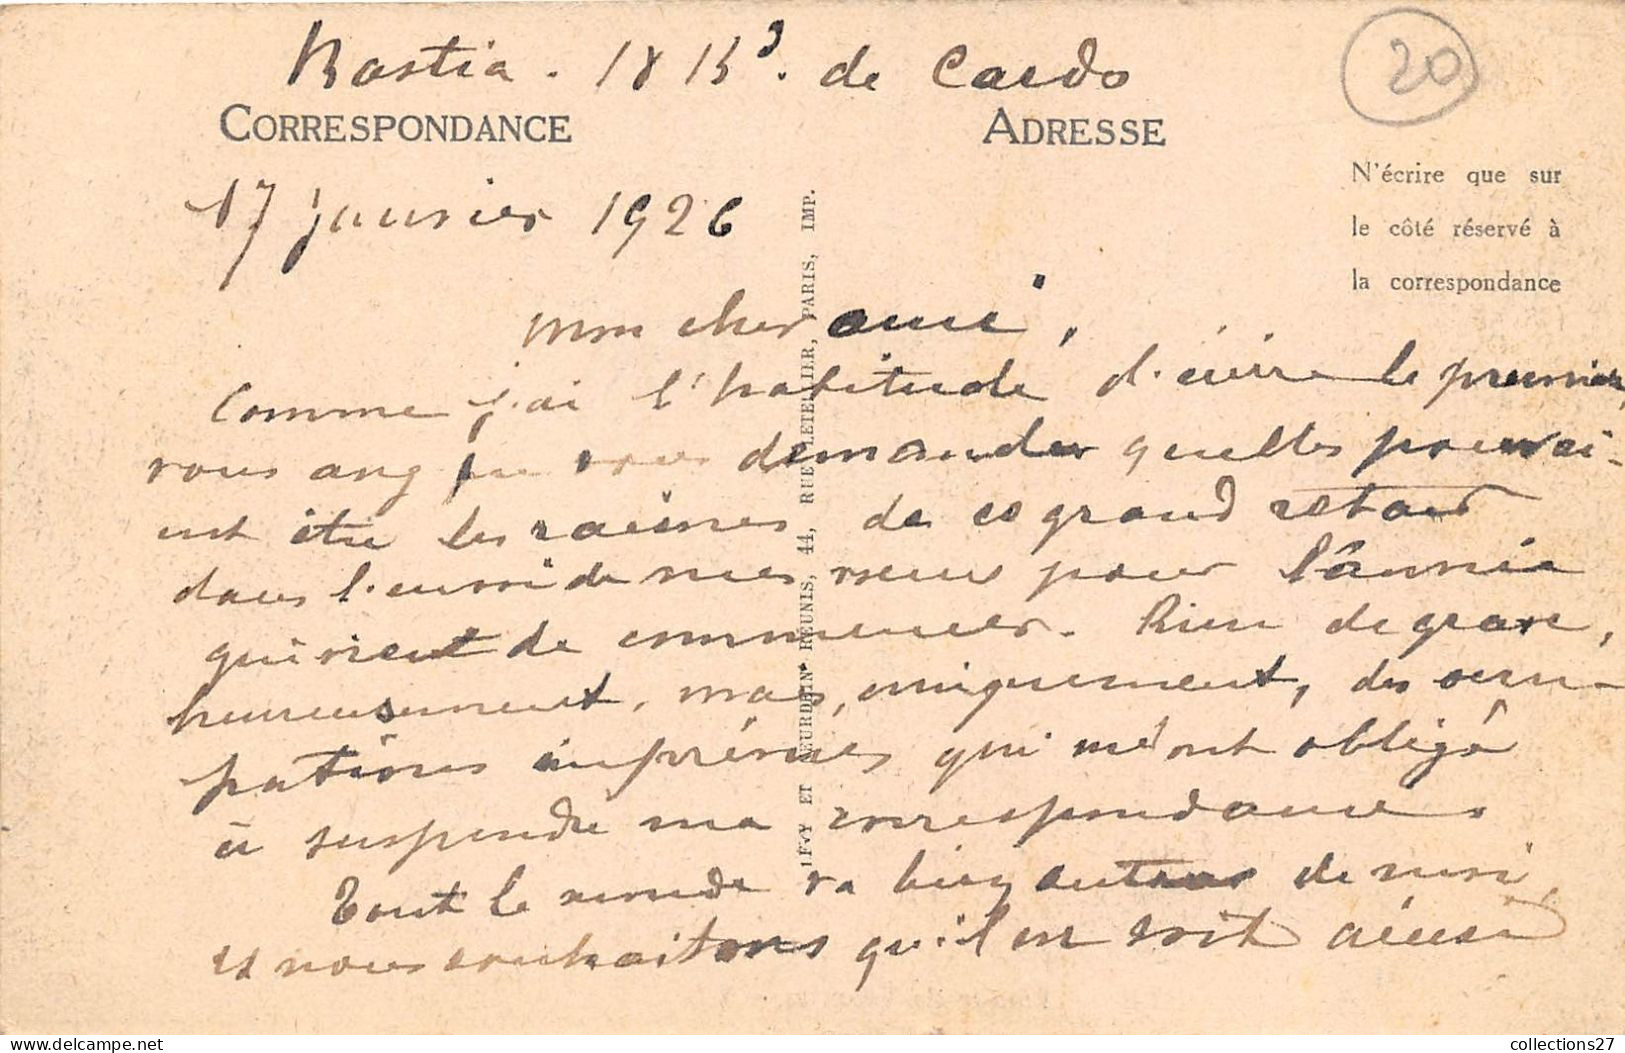 Bastia. 18 Bd. de Cardo
CORRESPONDANCE
ADRESSE
20
N'écrire que sur
le côté réservé à
la correspondance
17 janvier 1926
mon cher ami,
Comme j'ai l'habitude d'écrire le premier,
vous avez pu vous demander quelles pouvai-
ent être les raisons de ce grand retard
dans l'envoi de mes vœux pour l'année
qui vient de commencer. Rien de grave,
heureusement, mais, uniquement, des occu-
pations imprévues qui m'ont obligé
à suspendre ma correspondance
Tout le monde va bien autour de moi,
et nous souhaitons qu'il en soit ainsi
LÉVY ET NEURDEIN RÉUNIS, 44, RUE LETELLIER, PARIS, IMP.
collections27